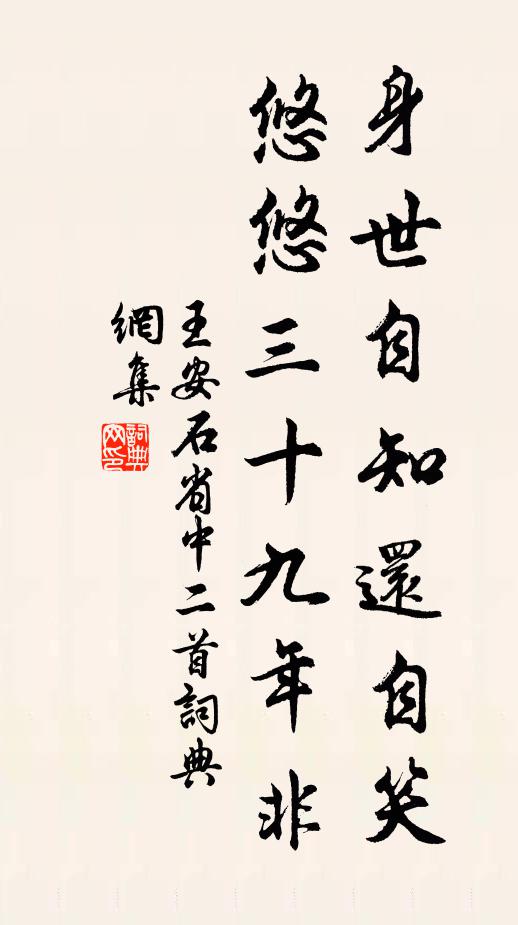 身世自知還自笑
悠悠三十九年非
王安石省中二首詞典
網集
詞典网印